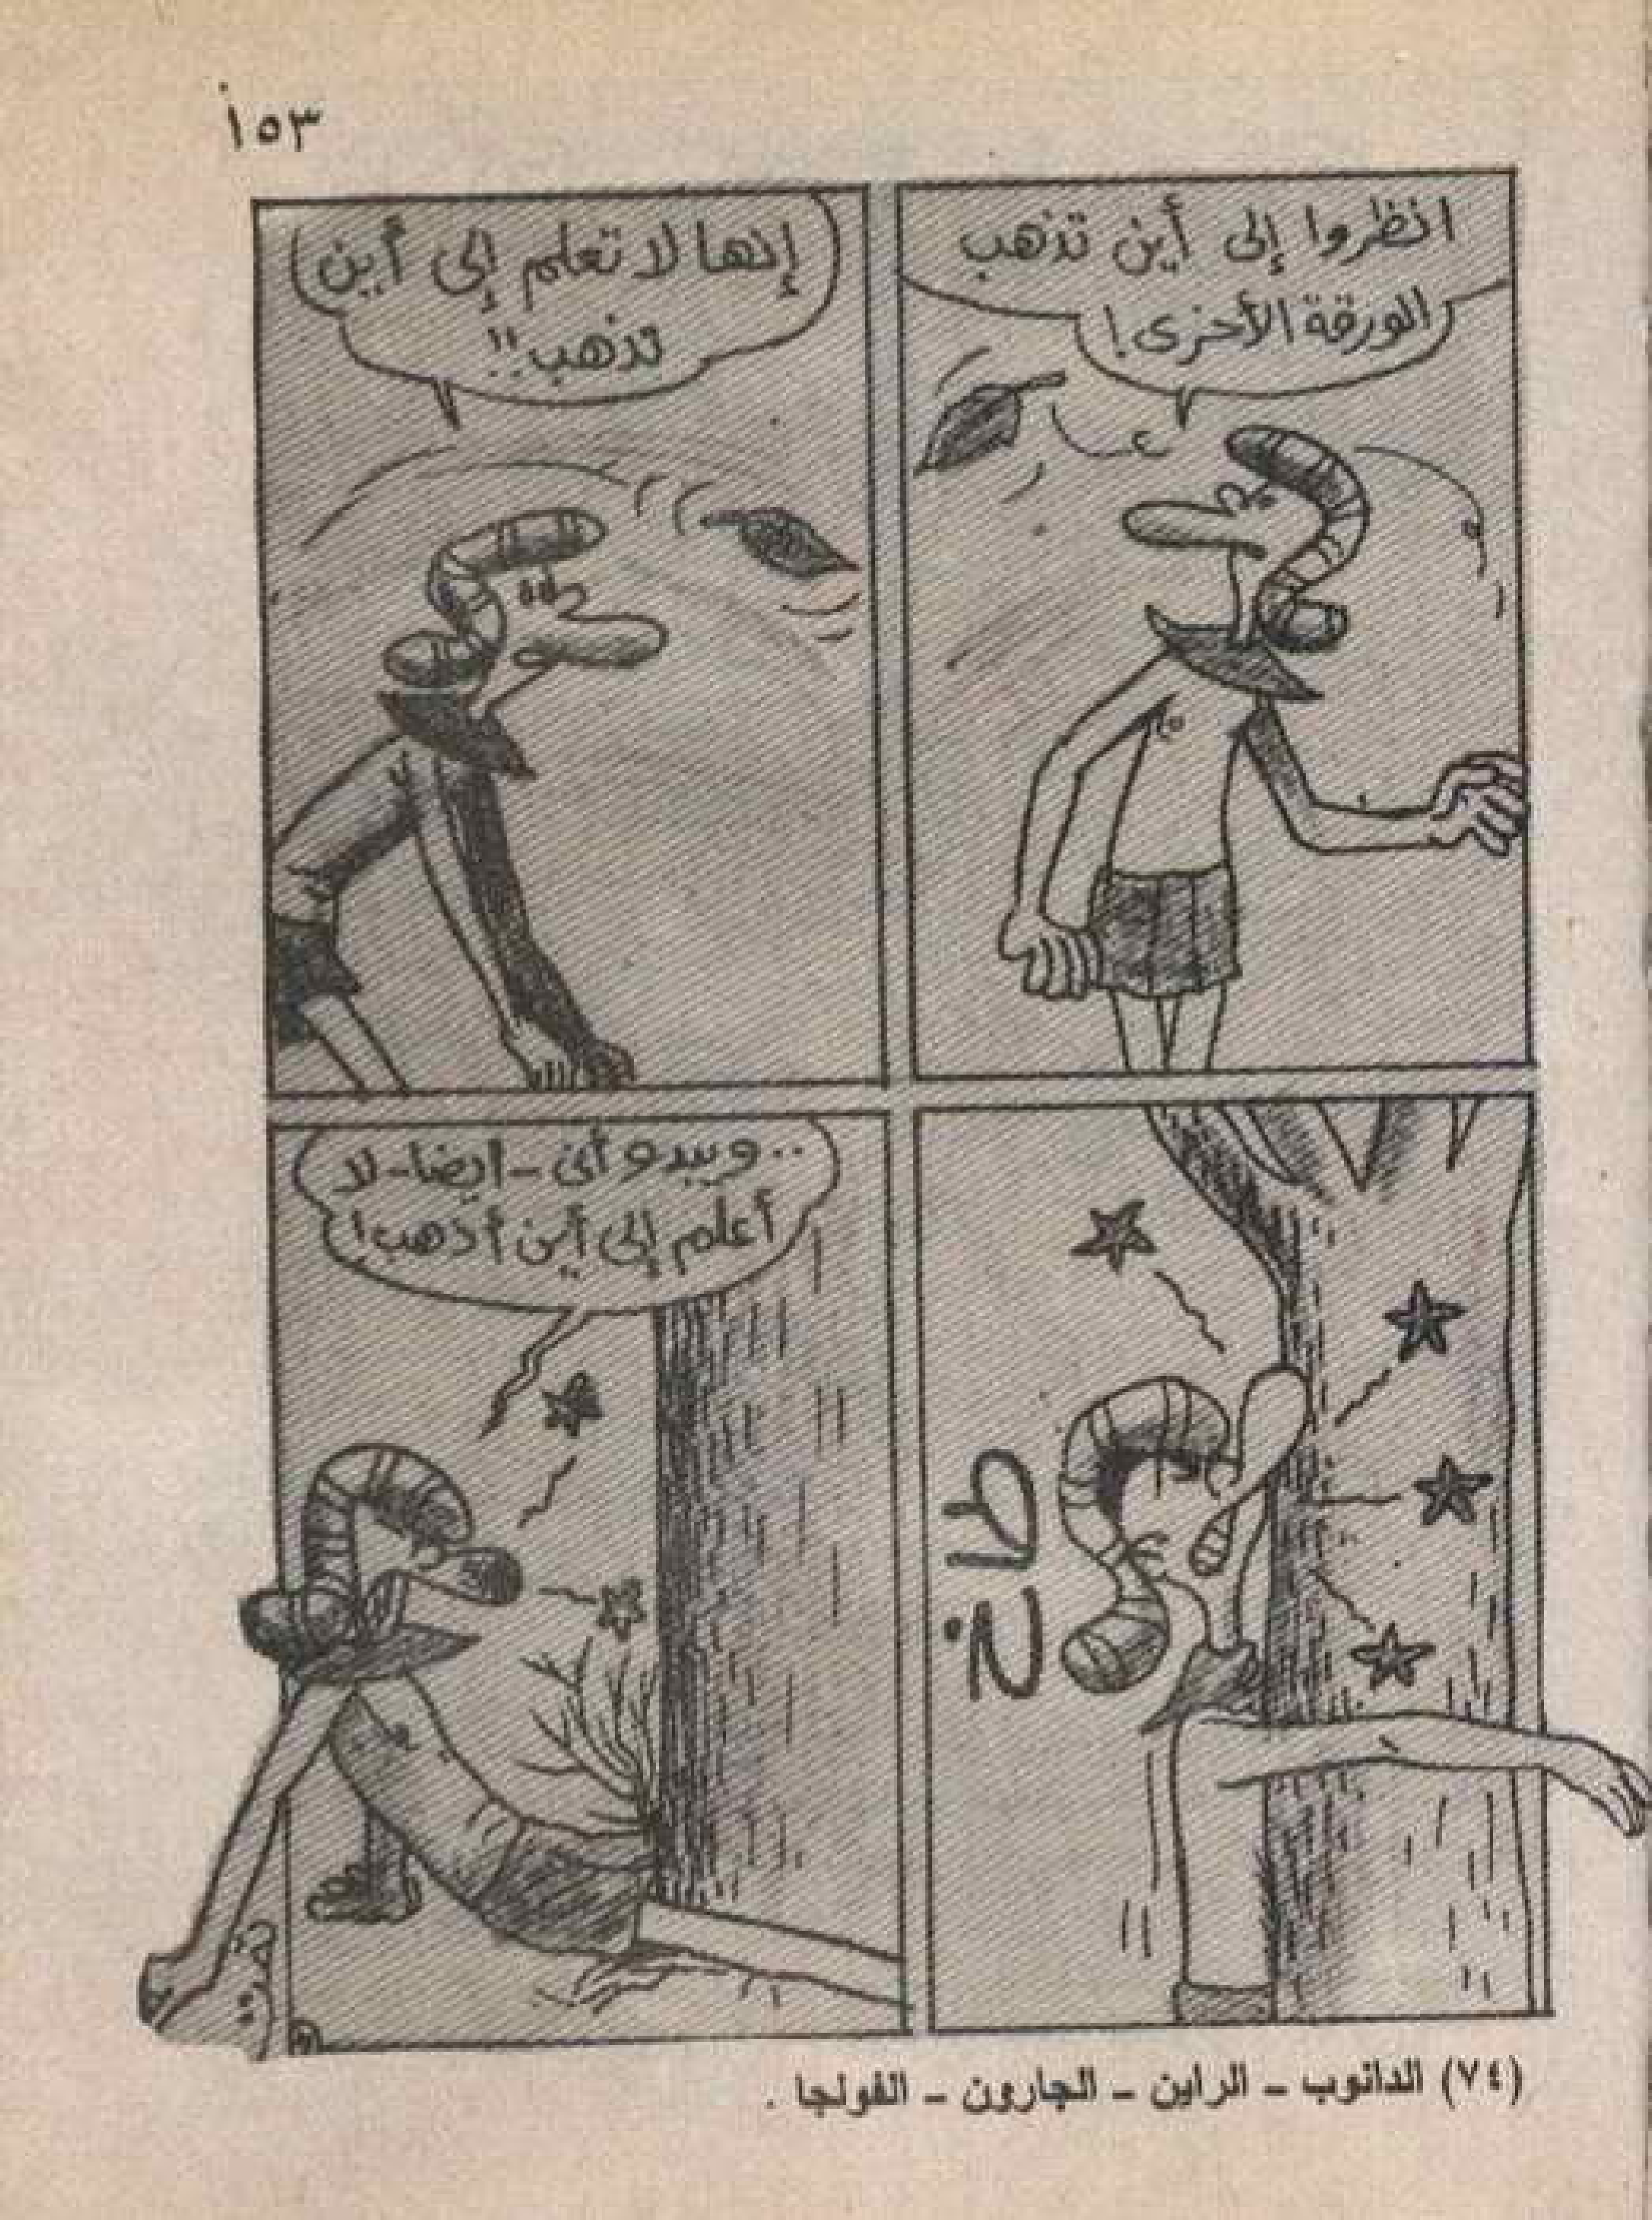 ١٥٣
انظروا إلى أين تذهب
الورقة الأخرى!
إنها لا تعلم إلى أين
تذهب!!
طاخ
..ويبدو أنى - ايضا - لا
أعلم إلى أين أذهب!
(٧٤) الدانوب - الراين - الجارون - الفولجا .